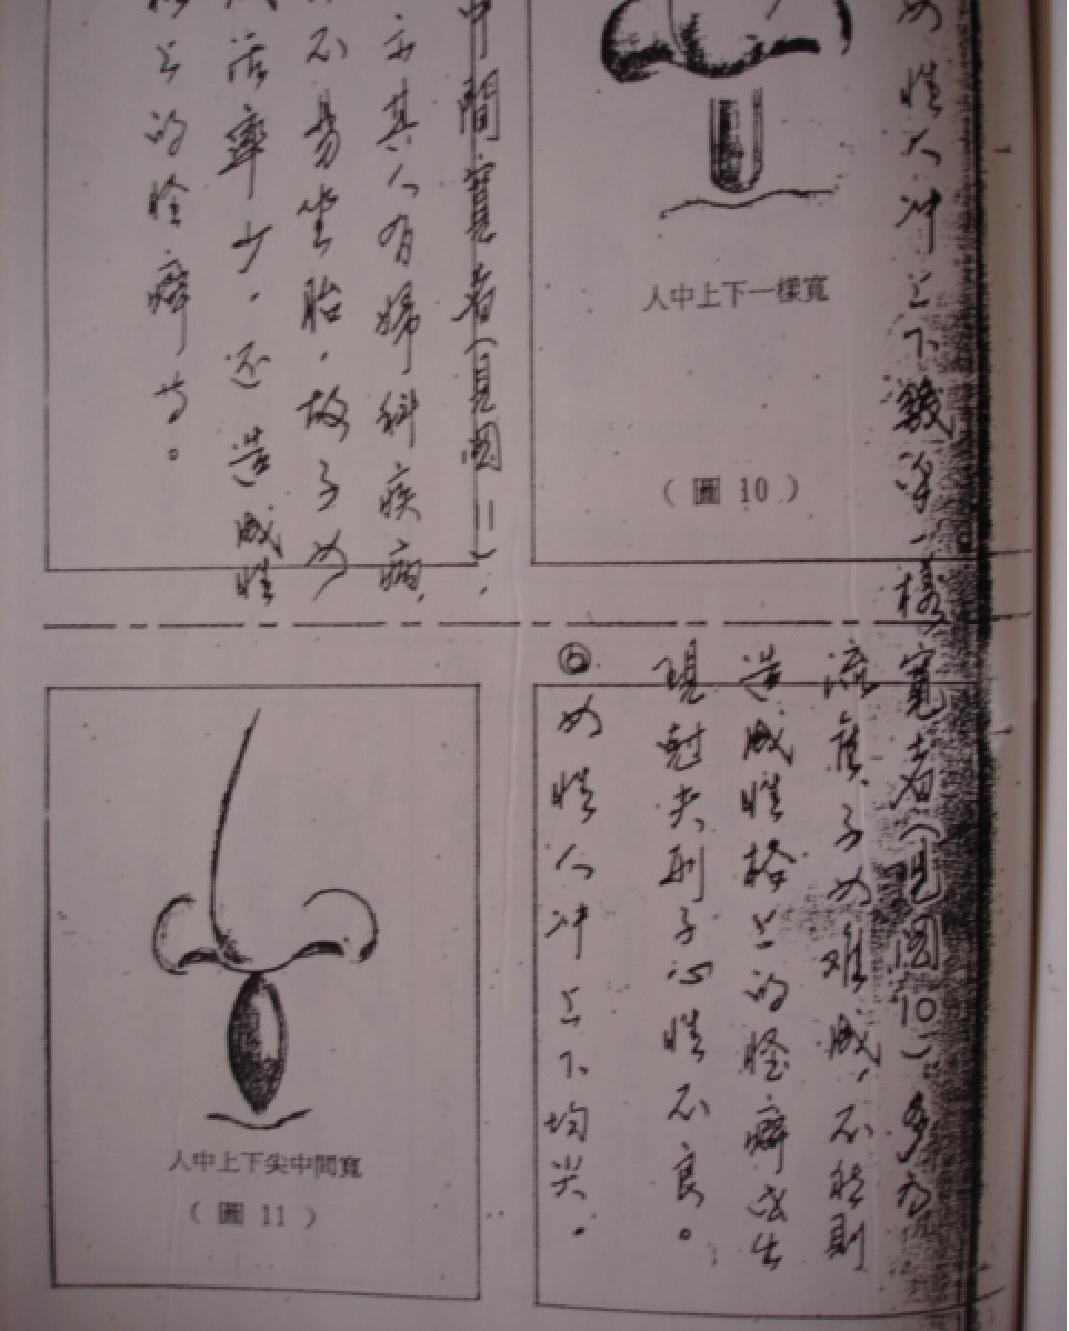 女性人冲上下幾乎一樣寬者(見圖10)多为
流產、子女難成,不然則
造成性格上的怪癖或出
現尅夫刑子心性不良。
⑥女性人冲上下均尖。
中間寬者(見圖11),
示其人有婦科疾病,
不易坐胎,故子女
成活率少,还造成性
格上的怪癖書。
人中上下一樣寬
(圖10)
人中上下尖中間寬
(圖11)